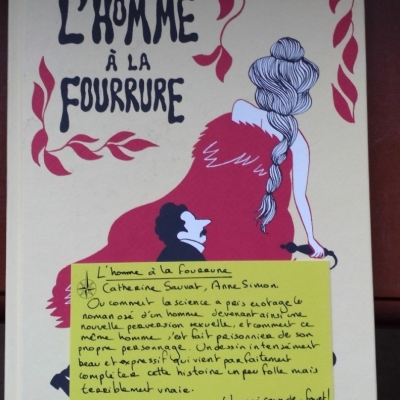 L'HOMME
À LA
FOURRURE
L'homme à la fourrure
Catherine Sauvat, Anne Simon
Ou comment la science a pris en otage le
roman osé d'un homme devenant ainsi une
nouvelle perversion sexuelle, et comment ce
même homme s'est fait prisonnier de son
propre personnage. Un dessin intensément
beau et expressif qui vient parfaitement
compléter cette histoire un peu folle mais
terriblement vraie.